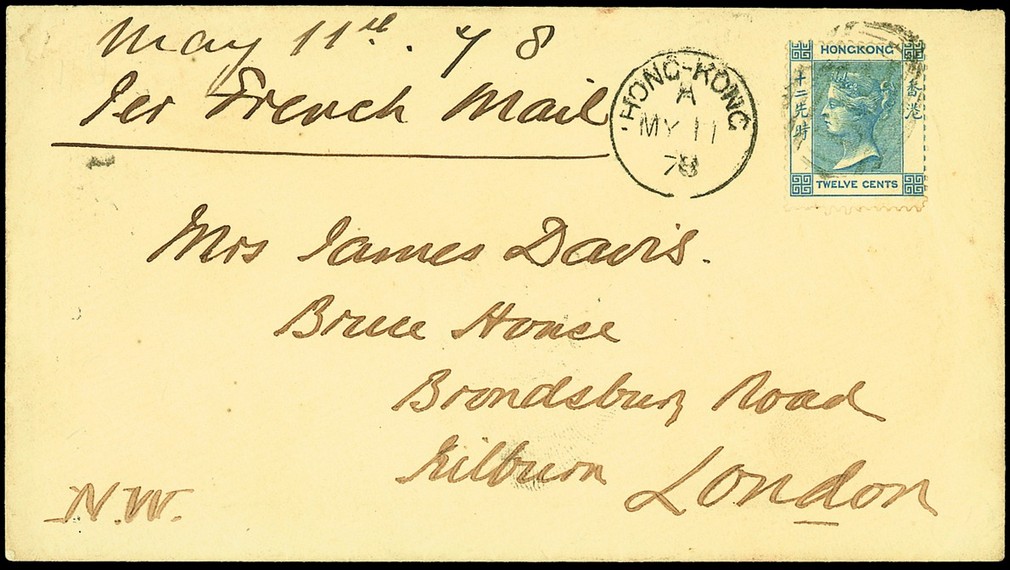 May 11th. 78
Per French Mail
HONG-KONG
A
MY 11
78
HONGKONG
十二先時
香港
TWELVE CENTS
Mrs James Davis.
Bruce House
Brondsbury Road
Kilburn London
N.W.